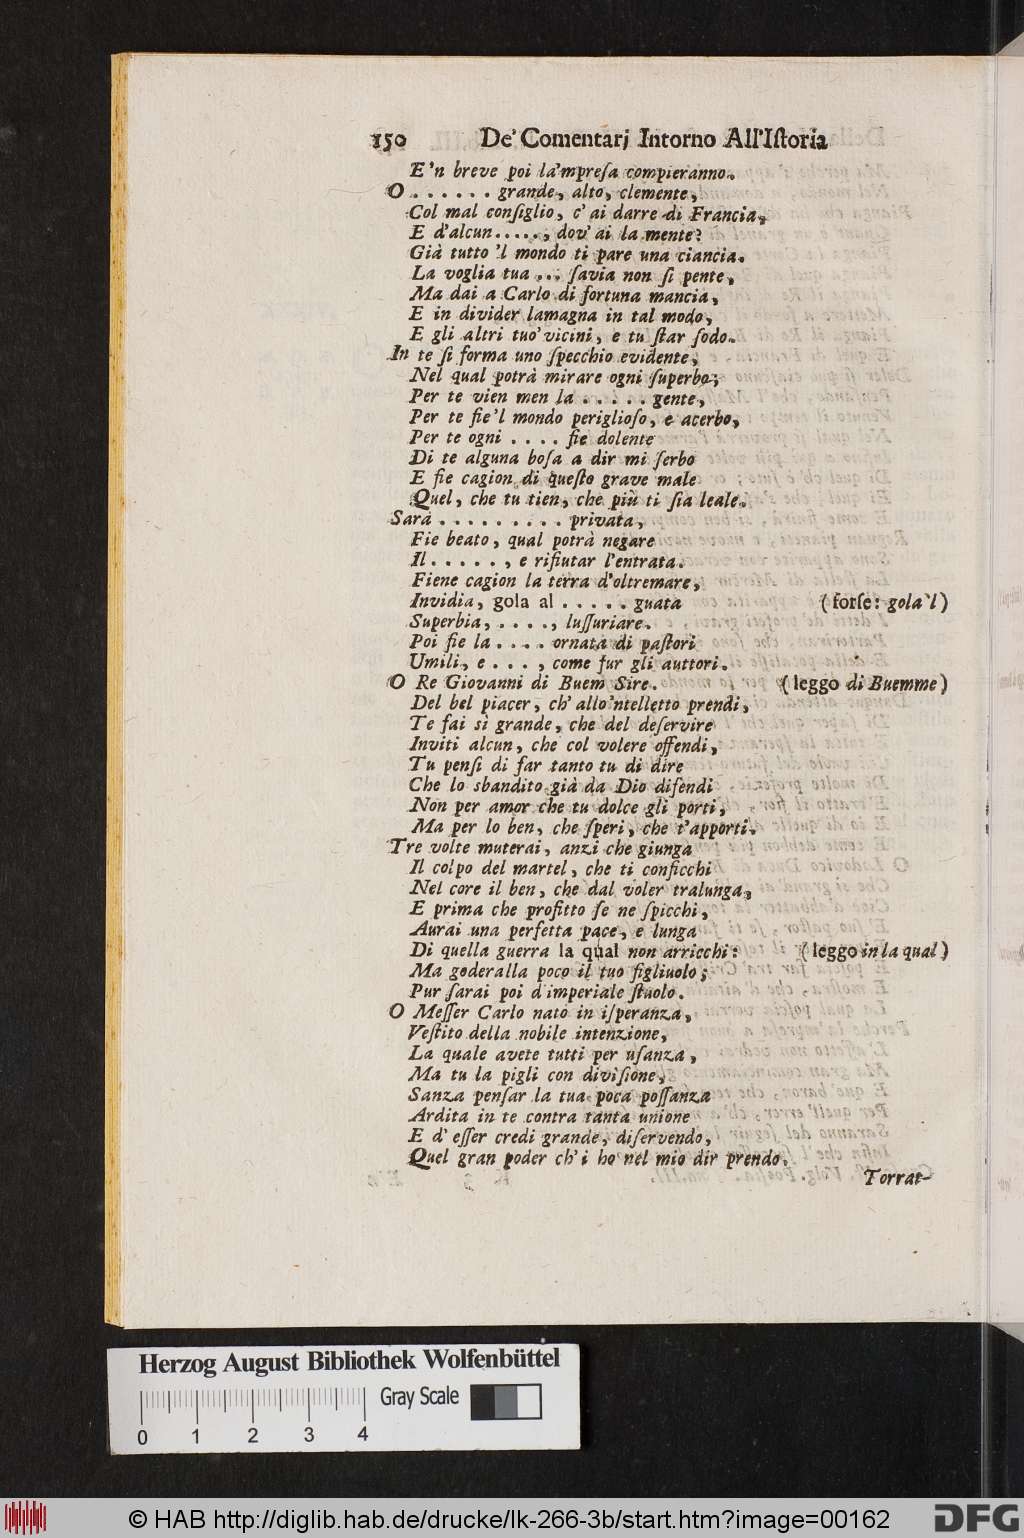 150 De' Comentarj Intorno All'Iſtoria
E'n breve poi la'mpreſa compieranno.
O . . . . . . grande, alto, clemente,
Col mal conſiglio, c' ai darre di Francia,
E d'alcun....., dov' ai la mente?
Già tutto 'l mondo ti pare una ciancia.
La voglia tua ... ſavia non ſi pente,
Ma dai a Carlo di fortuna mancia,
E in divider lamagna in tal modo,
E gli altri tuo' vicini, e tu ſtar ſodo.
In te ſi forma uno ſpecchio evidente,
Nel qual potrà mirare ogni ſuperbo;
Per te vien men la . . . . . gente,
Per te fie'l mondo periglioſo, e acerbo,
Per te ogni . . . . fie dolente
Di te alguna boſa a dir mi ſerbo
E fie cagion di queſto grave male
Quel, che tu tien, che più ti ſia leale.
Sarà . . . . . . . . . privata,
Fie beato, qual potrà negare
Il . . . . . , e rifiutar l'entrata.
Fiene cagion la terra d'oltremare,
Invidia, gola al . . . . . guata (forſe: gola`l)
Superbia, . . . ., luſſuriare.
Poi fie la . . . . ornata di paſtori
Umili, e . . . , come fur gli auttori.
O Re Giovanni di Buem Sire. (leggo di Buemme)
Del bel piacer, ch' allo'ntelletto prendi,
Te fai sì grande, che del deſervire
Inviti alcun, che col volere offendi,
Tu penſi di far tanto tu di dire
Che lo sbandito già da Dio difendi
Non per amor che tu dolce gli porti,
Ma per lo ben, che ſperi, che t'apporti.
Tre volte muterai, anzi che giunga
Il colpo del martel, che ti conficchi
Nel core il ben, che dal voler tralunga,
E prima che profitto ſe ne ſpicchi,
Aurai una perfetta pace, e lunga
Di quella guerra la qual non arricchi: (leggo in la qual)
Ma goderalla poco il tuo figliuolo;
Pur ſarai poi d'imperiale ſtuolo.
O Meſſer Carlo nato in iſperanza,
Veſtito della nobile intenzione,
La quale avete tutti per uſanza,
Ma tu la pigli con diviſione,
Sanza penſar la tua poca poſſanza
Ardita in te contra tanta unione
E d' eſſer credi grande, diſervendo,
Quel gran poder ch' i ho nel mio dir prendo.
Torrat-
Herzog August Bibliothek Wolfenbüttel
Gray Scale
0 1 2 3 4
© HAB http://diglib.hab.de/drucke/lk-266-3b/start.htm?image=00162
DFG